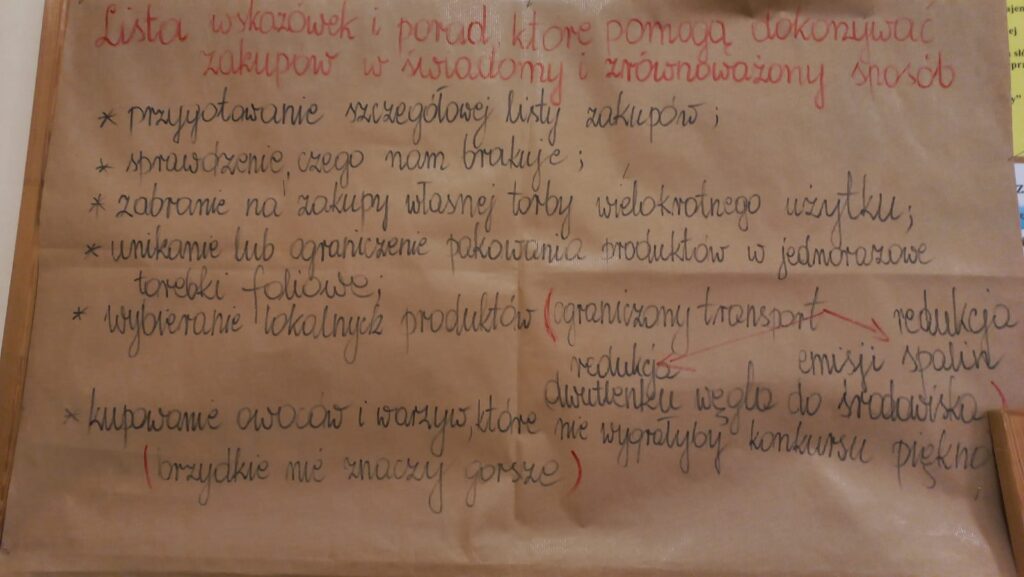 Lista wskazówek i porad które pomogą dokonywać
zakupów w świadomy i zrównoważony sposób
* przygotowanie szczegółowej listy zakupów;
* sprawdzenie, czego nam brakuje;
* zabranie na zakupy własnej torby wielokrotnego użytku;
* unikanie lub ograniczenie pakowania produktów w jednorazowe
torebki foliowe;
* wybieranie lokalnych produktów (ograniczony transport → redukcja
emisji spalin
redukcja
dwutlenku węgla do środowiska)
* kupowanie owoców i warzyw, które nie wygrałyby konkursu piękno
(brzydkie nie znaczy gorsze)